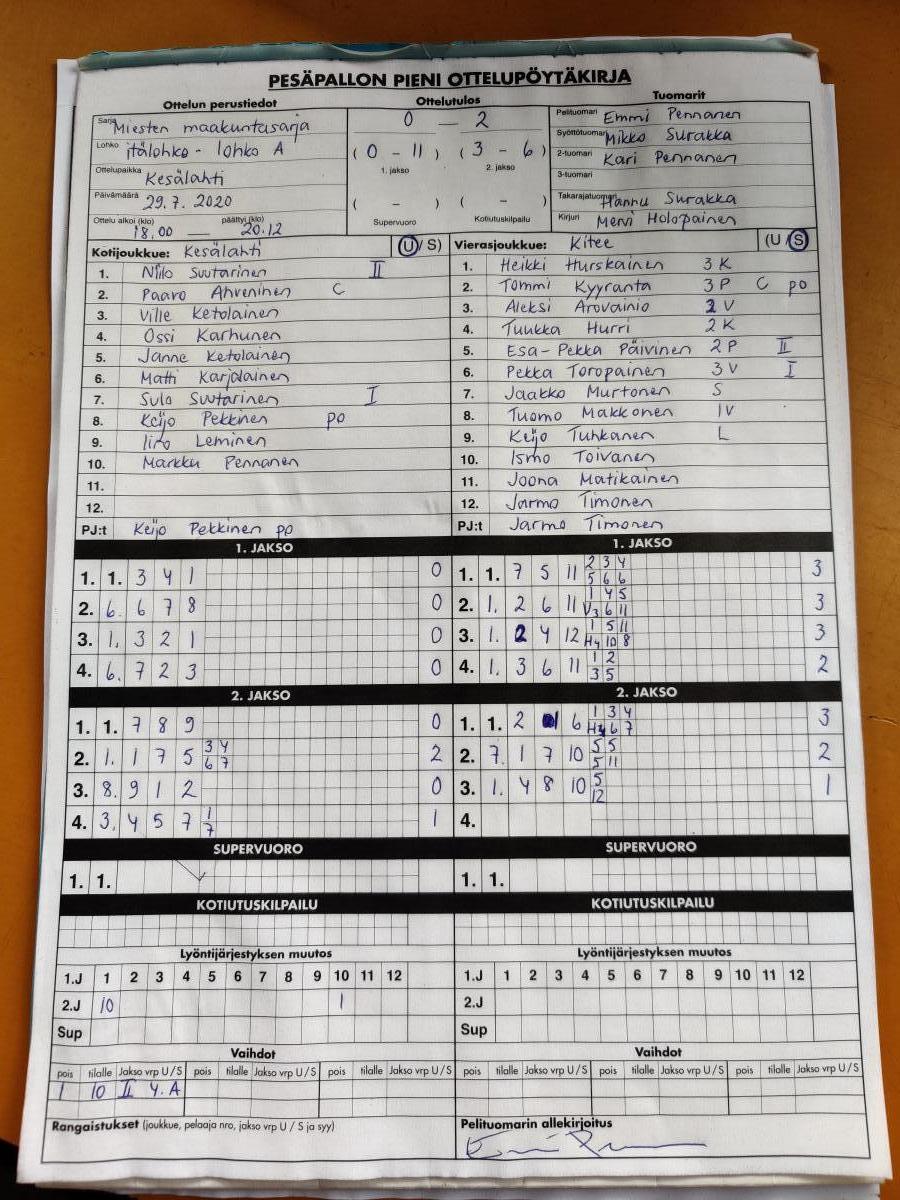 PESÄPALLON PIENI OTTELUPÖYTÄKIRJA
Ottelun perustiedot
Sarja Miesten maakuntasarja
Lohko itälohko - lohko A
Ottelupaikka Kesälahti
Päivämäärä 29.7. 2020
Ottelu alkoi (klo) päättyi (klo)
18.00 — 20.12
Ottelutulos
0 — 2
( 0 - 11 ) ( 3 - 6 )
1. jakso 2. jakso
( - ) ( - )
Supervuoro Kotiutuskilpailu
Tuomarit
Pelituomari Emmi Pennanen
Syöttötuomari Mikko Surakka
2-tuomari Kari Pennanen
3-tuomari
Takarajatuomari Hannu Surakka
Kirjuri Mervi Holopainen
Kotijoukkue: Kesälahti (U / S)
1. Niilo Suutarinen II
2. Paavo Ahveninen C
3. Ville Ketolainen
4. Ossi Karhunen
5. Janne Ketolainen
6. Matti Karjalainen
7. Sulo Suutarinen I
8. Keijo Pekkinen po
9. Iiro Leminen
10. Markku Pennanen
11.
12.
PJ:t Keijo Pekkinen po
Vierasjoukkue: Kitee (U / S)
1. Heikki Hurskainen 3 K
2. Tommi Kyyranta 3 P C po
3. Aleksi Arovainio 2 V
4. Tuukka Hurri 2 K
5. Esa-Pekka Päivinen 2 P II
6. Pekka Toropainen 3 V I
7. Jaakko Murtonen S
8. Tuomo Makkonen IV
9. Keijo Tuhkanen L
10. Ismo Toivanen
11. Joona Matikainen
12. Jarmo Timonen
PJ:t Jarmo Timonen
1. JAKSO
1. 1. 3 4 1 0
2. 6. 6 7 8 0
3. 1. 3 2 1 0
4. 6. 7 2 3 0
1. JAKSO
2 3 4
1. 1. 7 5 11 3
5 6 6
1 4 5
2. 1. 2 6 11 3
V3 6 11
1 5 11
3. 1. 2 4 12 3
H4 10 8
1 2
4. 1. 3 6 11 2
3 5
2. JAKSO
1. 1. 7 8 9 0
3 4
2. 1. 1 7 5 2
6 7
3. 8. 9 1 2 0
1
4. 3. 4 5 7 1
7
2. JAKSO
1 3 4
1. 1. 2 6 3
6 7
5 5
2. 7. 1 7 10 2
5 11
5
3. 1. 4 8 10 1
12
4.
SUPERVUORO
1. 1.
SUPERVUORO
1. 1.
KOTIUTUSKILPAILU
KOTIUTUSKILPAILU
Lyöntijärjestyksen muutos
1.J 1 2 3 4 5 6 7 8 9 10 11 12
2.J 10 1
Sup
Lyöntijärjestyksen muutos
1.J 1 2 3 4 5 6 7 8 9 10 11 12
2.J
Sup
Vaihdot
pois tilalle Jakso vrp U / S pois tilalle Jakso vrp U / S pois tilalle Jakso vrp U / S
1 10 II 4. A
Vaihdot
pois tilalle Jakso vrp U / S pois tilalle Jakso vrp U / S pois tilalle Jakso vrp U / S
Rangaistukset (joukkue, pelaaja nro, jakso vrp U / S ja syy)
Pelituomarin allekirjoitus